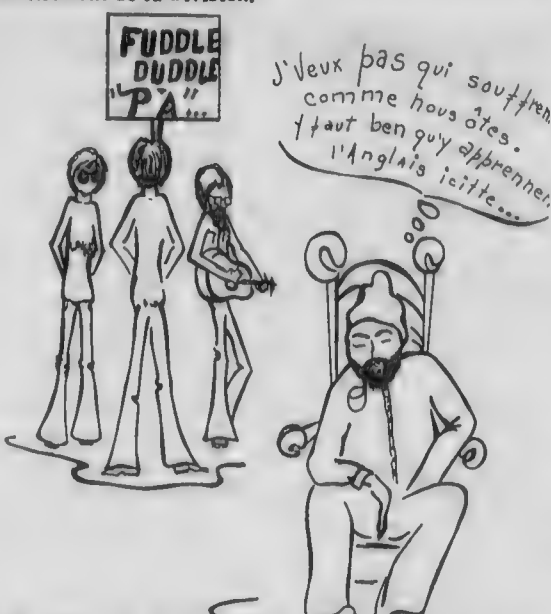 FUDDLE
DUDDLE
"PA"...
J'Veux pas qui souffren
comme nous ôtes.
Y faut ben qu'y apprennen
l'Anglais icitte...